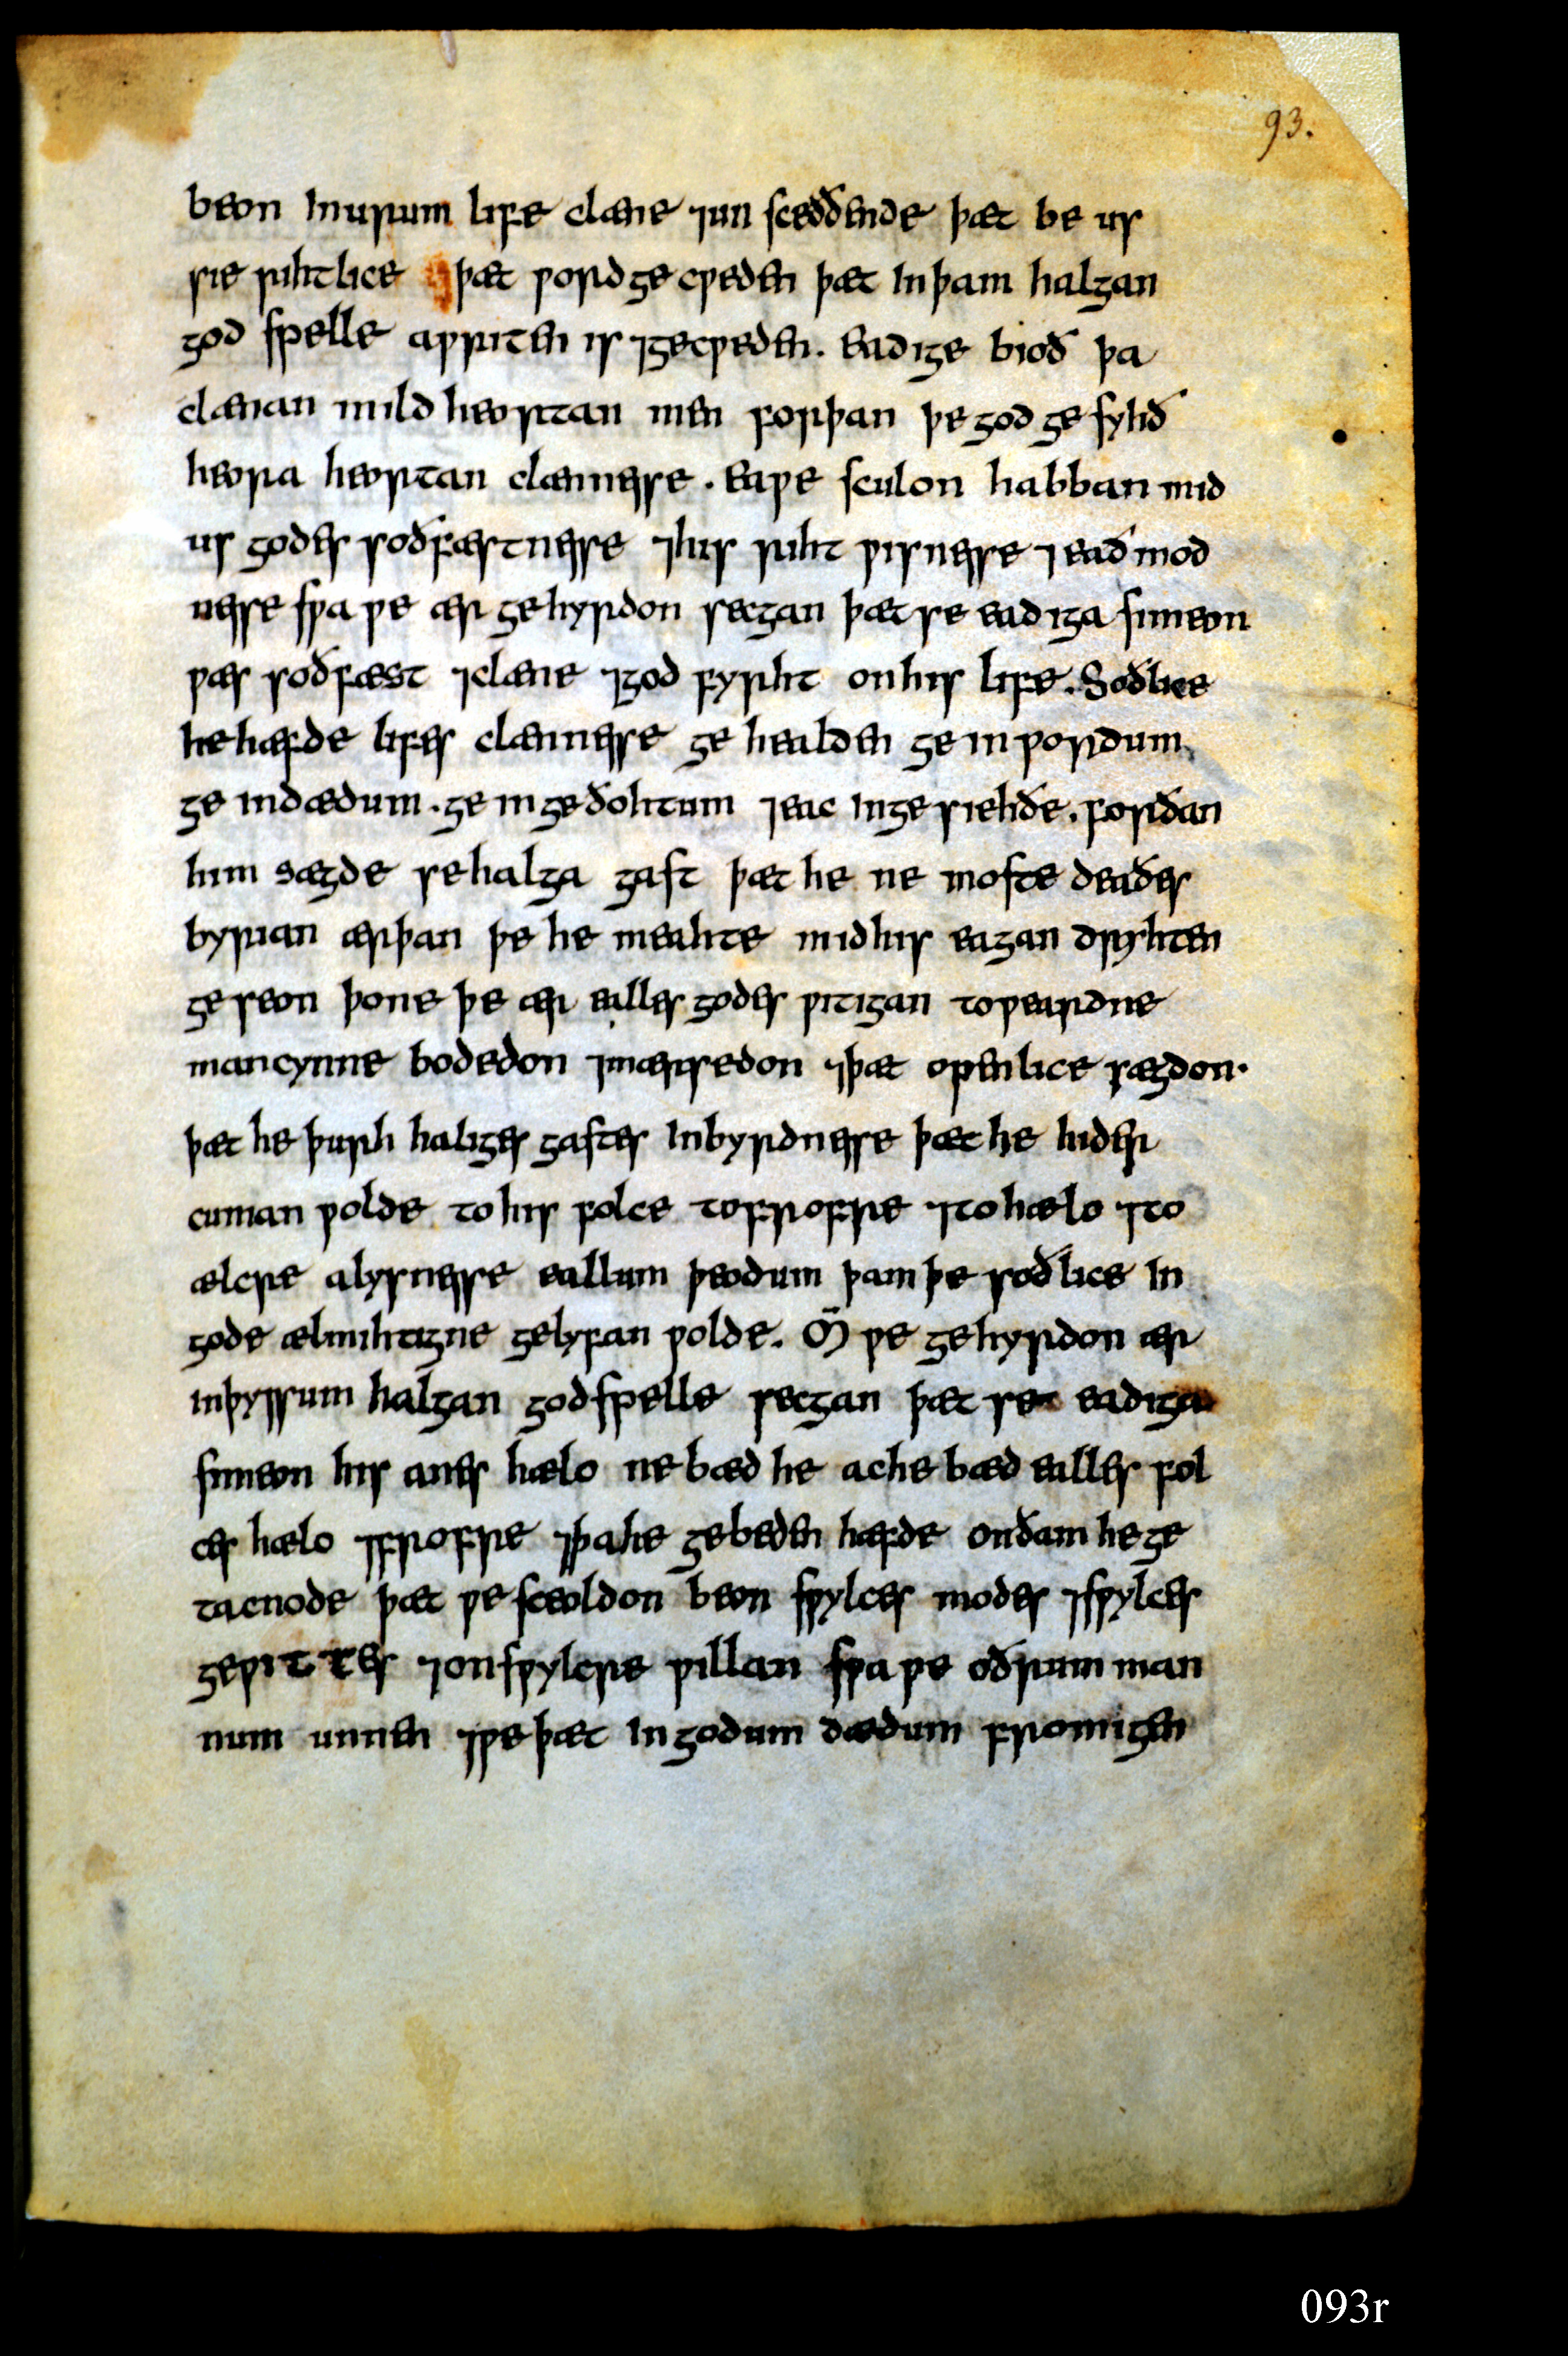 93.
beon in urum life clæne ⁊ un sceððende þæt be us
sie rihtlice þæt ƿord ge cƿeden þæt in þam halgan
god spelle aƿriten is ⁊ gecƿeden. Eadige bioð þa
clænan mild heortan men forþan þe god ge syhð
heora heortan clænnesse. Ea ƿe sculon habban mid
us godes soðfæstnesse ⁊ his riht ƿisnesse ⁊ eað mod
nesse sƿa ƿe ær gehyrdon secgan þæt se eadiga simeon
ƿæs soðfæst ⁊ clæne ⁊ god fyrht on his life. Soðlice
he hæfde lifes clænnesse ge healden ge in ƿordum
ge in dædum. ge in geðohtum ⁊ eac in ge siehðe. forðan
him sægde se halga gast þæt he ne moste deaðes
byrian ærþan þe he meahte mid his eagan dryhten
ge seon þone þe ær ealles godes ƿitigan toƿeardne
mancynne bodedon ⁊ mærsedon ⁊ þæt openlice sægdon.
þæt he þurh haliges gastes inbyrdnesse þæt he hider
cuman ƿolde to his folce to frofre ⁊ to hælo ⁊ to
ælcre alysnesse eallum þeodum þam þe soðlice in
gode ælmihtigne gelyfan ƿolde. M̄ ƿe gehyrdon ær
in þyssum halgan godspelle secgan þæt se eadiga
simeon his anes hælo ne bæd he ac he bæd ealles fol
ces hælo ⁊ frofre ⁊ þa he gebeden hæfde on ðam he ge
tacnode þæt ƿe sceoldon beon sƿylces modes ⁊ sƿylces
geƿittes ⁊ on sƿylcre ƿillan sƿa ƿe oðrum man
num unnen ⁊ ƿe þæt in godum dædum fromigen
093r